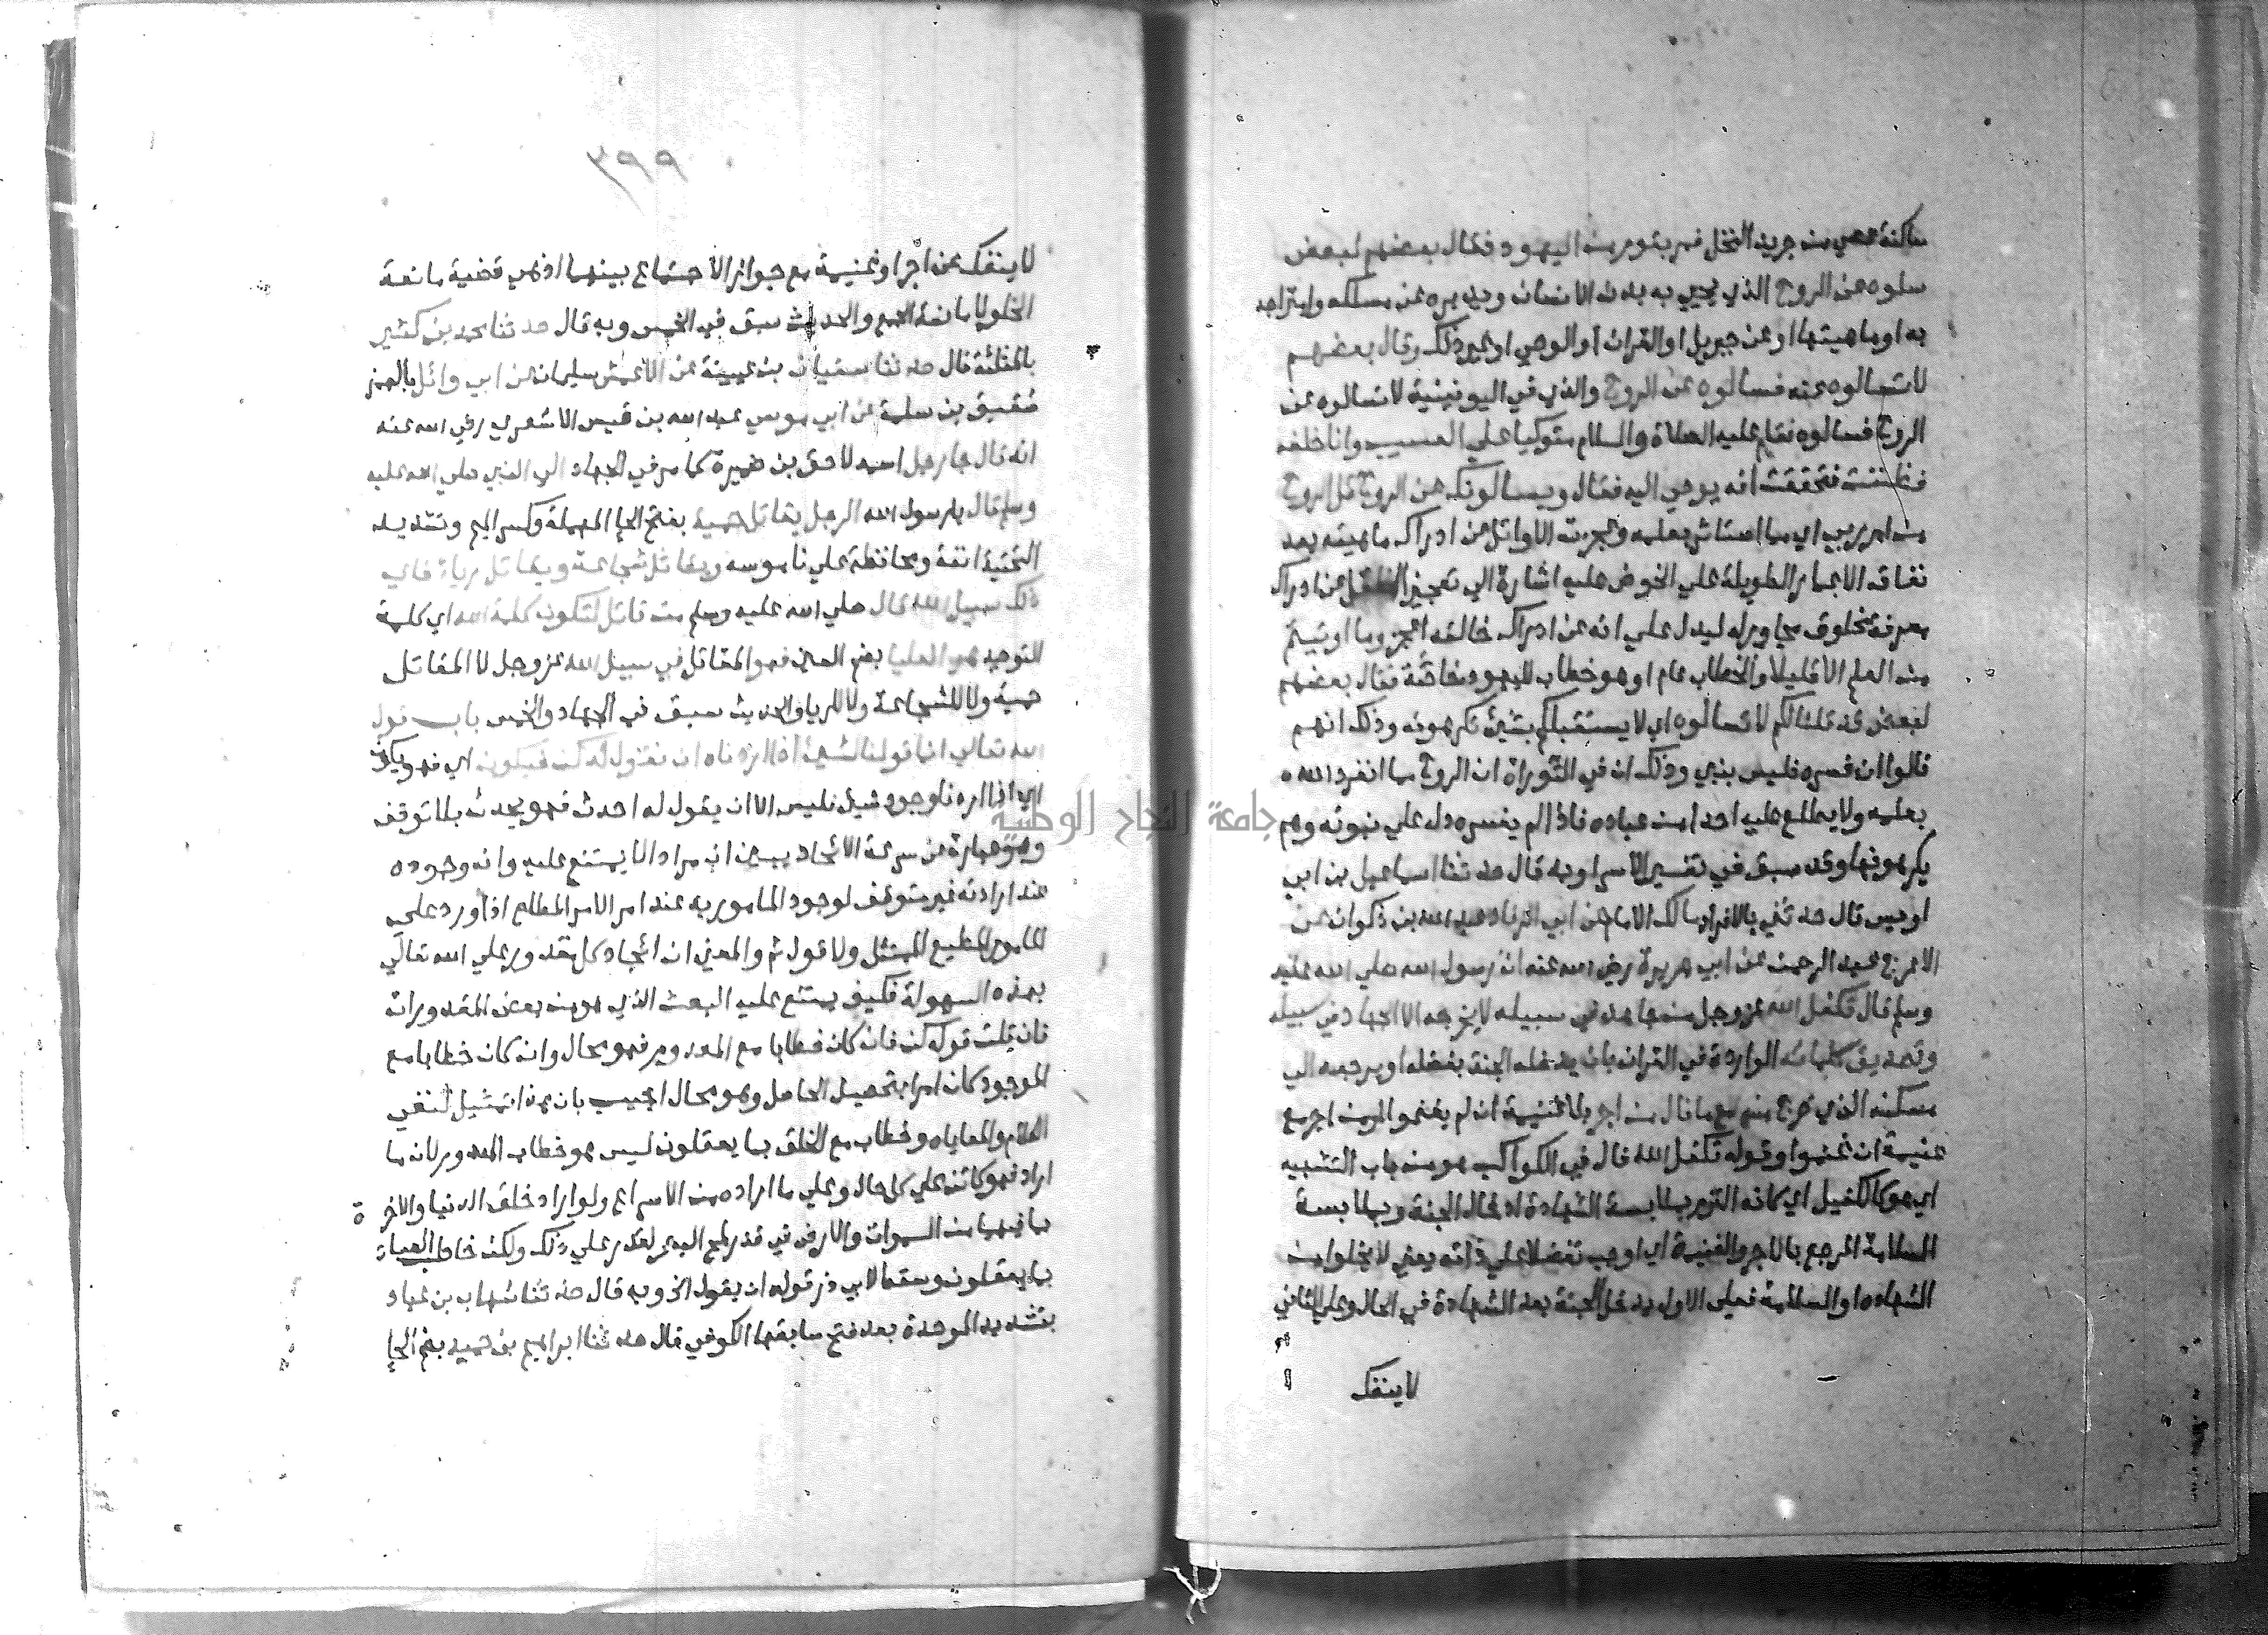 ساكنة عصي من جريد النخل فمر بقوم من اليهود فقال بعضهم لبعض
سلوه عن الروح الذي يحيي به بدن الانسان ويدبره عن مسلكه وامتزاجه
به او ماهيتها او عن جبريل او القران او الوحي او غير ذلك وقال بعضهم
لا تسالوه عنه فسالوه عن الروح والذي في اليونينية لا تسالوه عن
الروح فسالوه فقام عليه الصلاة والسلام متوكيا علي العسيب وانا خلفه
فظننت فتحققت انه يوحي اليه فقال ويسالونك عن الروح قل الروح
من امر ربي اي مما استاثر بعلمه وعجزت الاوائل عن ادراك ماهيته بعد
نفاق الاعمار الطويلة علي الخوض عليه اشارة الي تعجيز العقل عن ادراك
معرفة مخلوق مجاور له ليدل علي انه عن ادراك خالقه اعجز وما اوتيتم
من العلم الا قليلا والخطاب عام او هو خطاب لليهود خاصة فقال بعضهم
لبعض قد قلنا لكم لا تسالوه اي لا يستقبلكم بشيئ تكرهونه وذلك انهم
قالوا ان فسره فليس بنبي وذلك ان في التوراة ان الروح مما انفرد الله
بعلمه ولا يطلع عليه احدا من عباده فاذا لم يفسره دل علي نبوته وهم
يكرهونها وقد سبق في تفسير الاسرا وبه قال حدثنا اسماعيل بن ابي
اويس قال حدثني بالافراد مالك الامام عن ابي الزناد عبد الله بن ذكوان عن
الاعرج عبد الرحمن عن ابي هريرة رضي الله عنه ان رسول الله صلي الله عليه
وسلم قال تكفل الله عز وجل لمن جاهد في سبيله لا يخرجه الا الجهاد في سبيله
وتصديق كلماته الواردة في القران بان يدخله الجنة بفضله او يرجعه الي
مسكنه الذي خرج منه مع ما نال من اجر بلا غنيمة ان لم يغنموا او من اجر مع
غنيمة ان غنموا وقوله تكفل الله قال في الكواكب هو من باب التشبيه
اي هو كالكفيل اي كانه التزم بملابسة الشهادة ادخال الجنة وبملابسة
السلامة المرجع بالاجر والغنيمة اي اوجب تفضلا علي ذاته يعني لا يخلوا من
الشهاده او السلامة فعلي الاول يدخل الجنة بعد الشهادة في الحال وعلي الثاني
لا ينفك
٣٩٩
لا ينفك عن اجر او غنيمة مع جواز الاجتماع بينهما اذ هي قضية مانعة
الخلو لا مانعة الجمع والحديث سبق في الخمس وبه قال حدثنا محمد بن كثير
بالمثلثة قال حدثنا سفيان بن عيينة عن الاعمش سليمان عن ابي وائل بالهمز
شقيق بن سلمة عن ابي موسي عبد الله بن قيس الاشعري رضي الله عنه
انه قال جا رجل اسمه لاحق بن ضميرة كما مر في الجهاد الي النبي صلي الله عليه
وسلم قال يا رسول الله الرجل يقاتل حمية بفتح الحا المهملة وكسر الميم وتشديد
التحتية انفة ومحافظة علي ناموسه ويقاتل شجاعة ويقاتل رياء فاي
ذلك سبيل الله قال صلي الله عليه وسلم من قاتل لتكون كلمة الله اي كلمة
التوحيد هي العليا بضم العين فهو المقاتل في سبيل الله عز وجل لا المقاتل
حمية ولا للشجاعة ولا للريا والحديث سبق في الجهاد والخمس باب قول
الله تعالي انما قولنا لشيئ اذا اردناه ان نقول له كن فيكون اي فهو يكون
اي اذا اردنا وجود شيئ فليس الا ان يقول له احدث فهو يحدث بلا توقف
وهو عبارة عن سرعة الايجاد يبين ان مراد الا يمتنع عليه وانه وجوده
عند ارادته غير متوقف لوجود المامور به عند امر الامر المطاع اذا ورد علي
المامور المطيع الممتثل ولا قول ثم والمعني ان ايجاد كل مقدور علي الله تعالي
بهذه السهولة فكيف يمتنع عليه البعث الذي هو من بعض المقدورات
فان قلت قوله كن فان كان خطابا مع المعدوم فهو محال وان كان خطابا مع
الموجود كان امرا بتحصيل الحاصل وهو محال اجيب بان هذا تمثيل لنفي
الكلام والمعاياه وخطاب مع الخلق بما يعقلون ليس هو خطاب المعدوم لان ما
اراد فهو كائن علي كل حال وعلي ما اراده من الاسراع ولو اراد خلق الدنيا والاخرة
بما فيهما من السموات والارض في قدر لمح البصر لقدر علي ذلك ولكن خاطب العباد
بما يعقلون وسقط لابي ذر قوله ان يقول الخ وبه قال حدثنا شهاب بن عباد
بتشديد الموحدة بعد فتح سابقها الكوفي قال حدثنا ابراهيم بن حميد بضم الحا
جامعة النجاح الوطنية